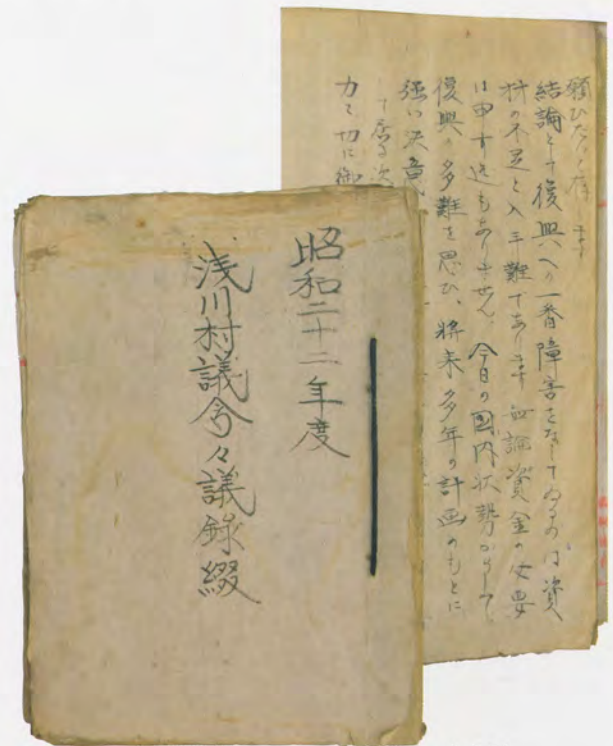 昭和二十二年度
浅川村議会々議録綴
願ひたく存じます
結論として復興への一番障害をなしてゐるのは資
材の不足と入手難であります 勿論資金の必要
は申す迄もありません、今日の国内状勢からして、
復興の多難を思ひ、将来多年の計画のもとに
強い決意
して居る次
力を切に御